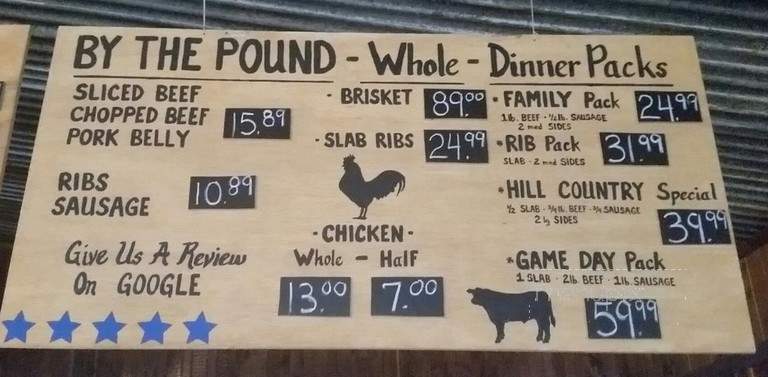 BY THE POUND - Whole - Dinner Packs
SLICED BEEF
CHOPPED BEEF
PORK BELLY
15.89
RIBS
SAUSAGE
10.89
Give Us A Review
On GOOGLE
- BRISKET
89.00
- SLAB RIBS
24.99
- CHICKEN -
Whole - Half
13.00 7.00
• FAMILY Pack
24.99
1 lb. BEEF - ½ lb. SAUSAGE
2 med SIDES
• RIB Pack
31.99
SLAB - 2 med SIDES
• HILL COUNTRY Special
½ SLAB - ¾ lb. BEEF - ¾ SAUSAGE
2 lg SIDES
39.99
• GAME DAY Pack
1 SLAB - 2 lb. BEEF - 1 lb. SAUSAGE
59.99